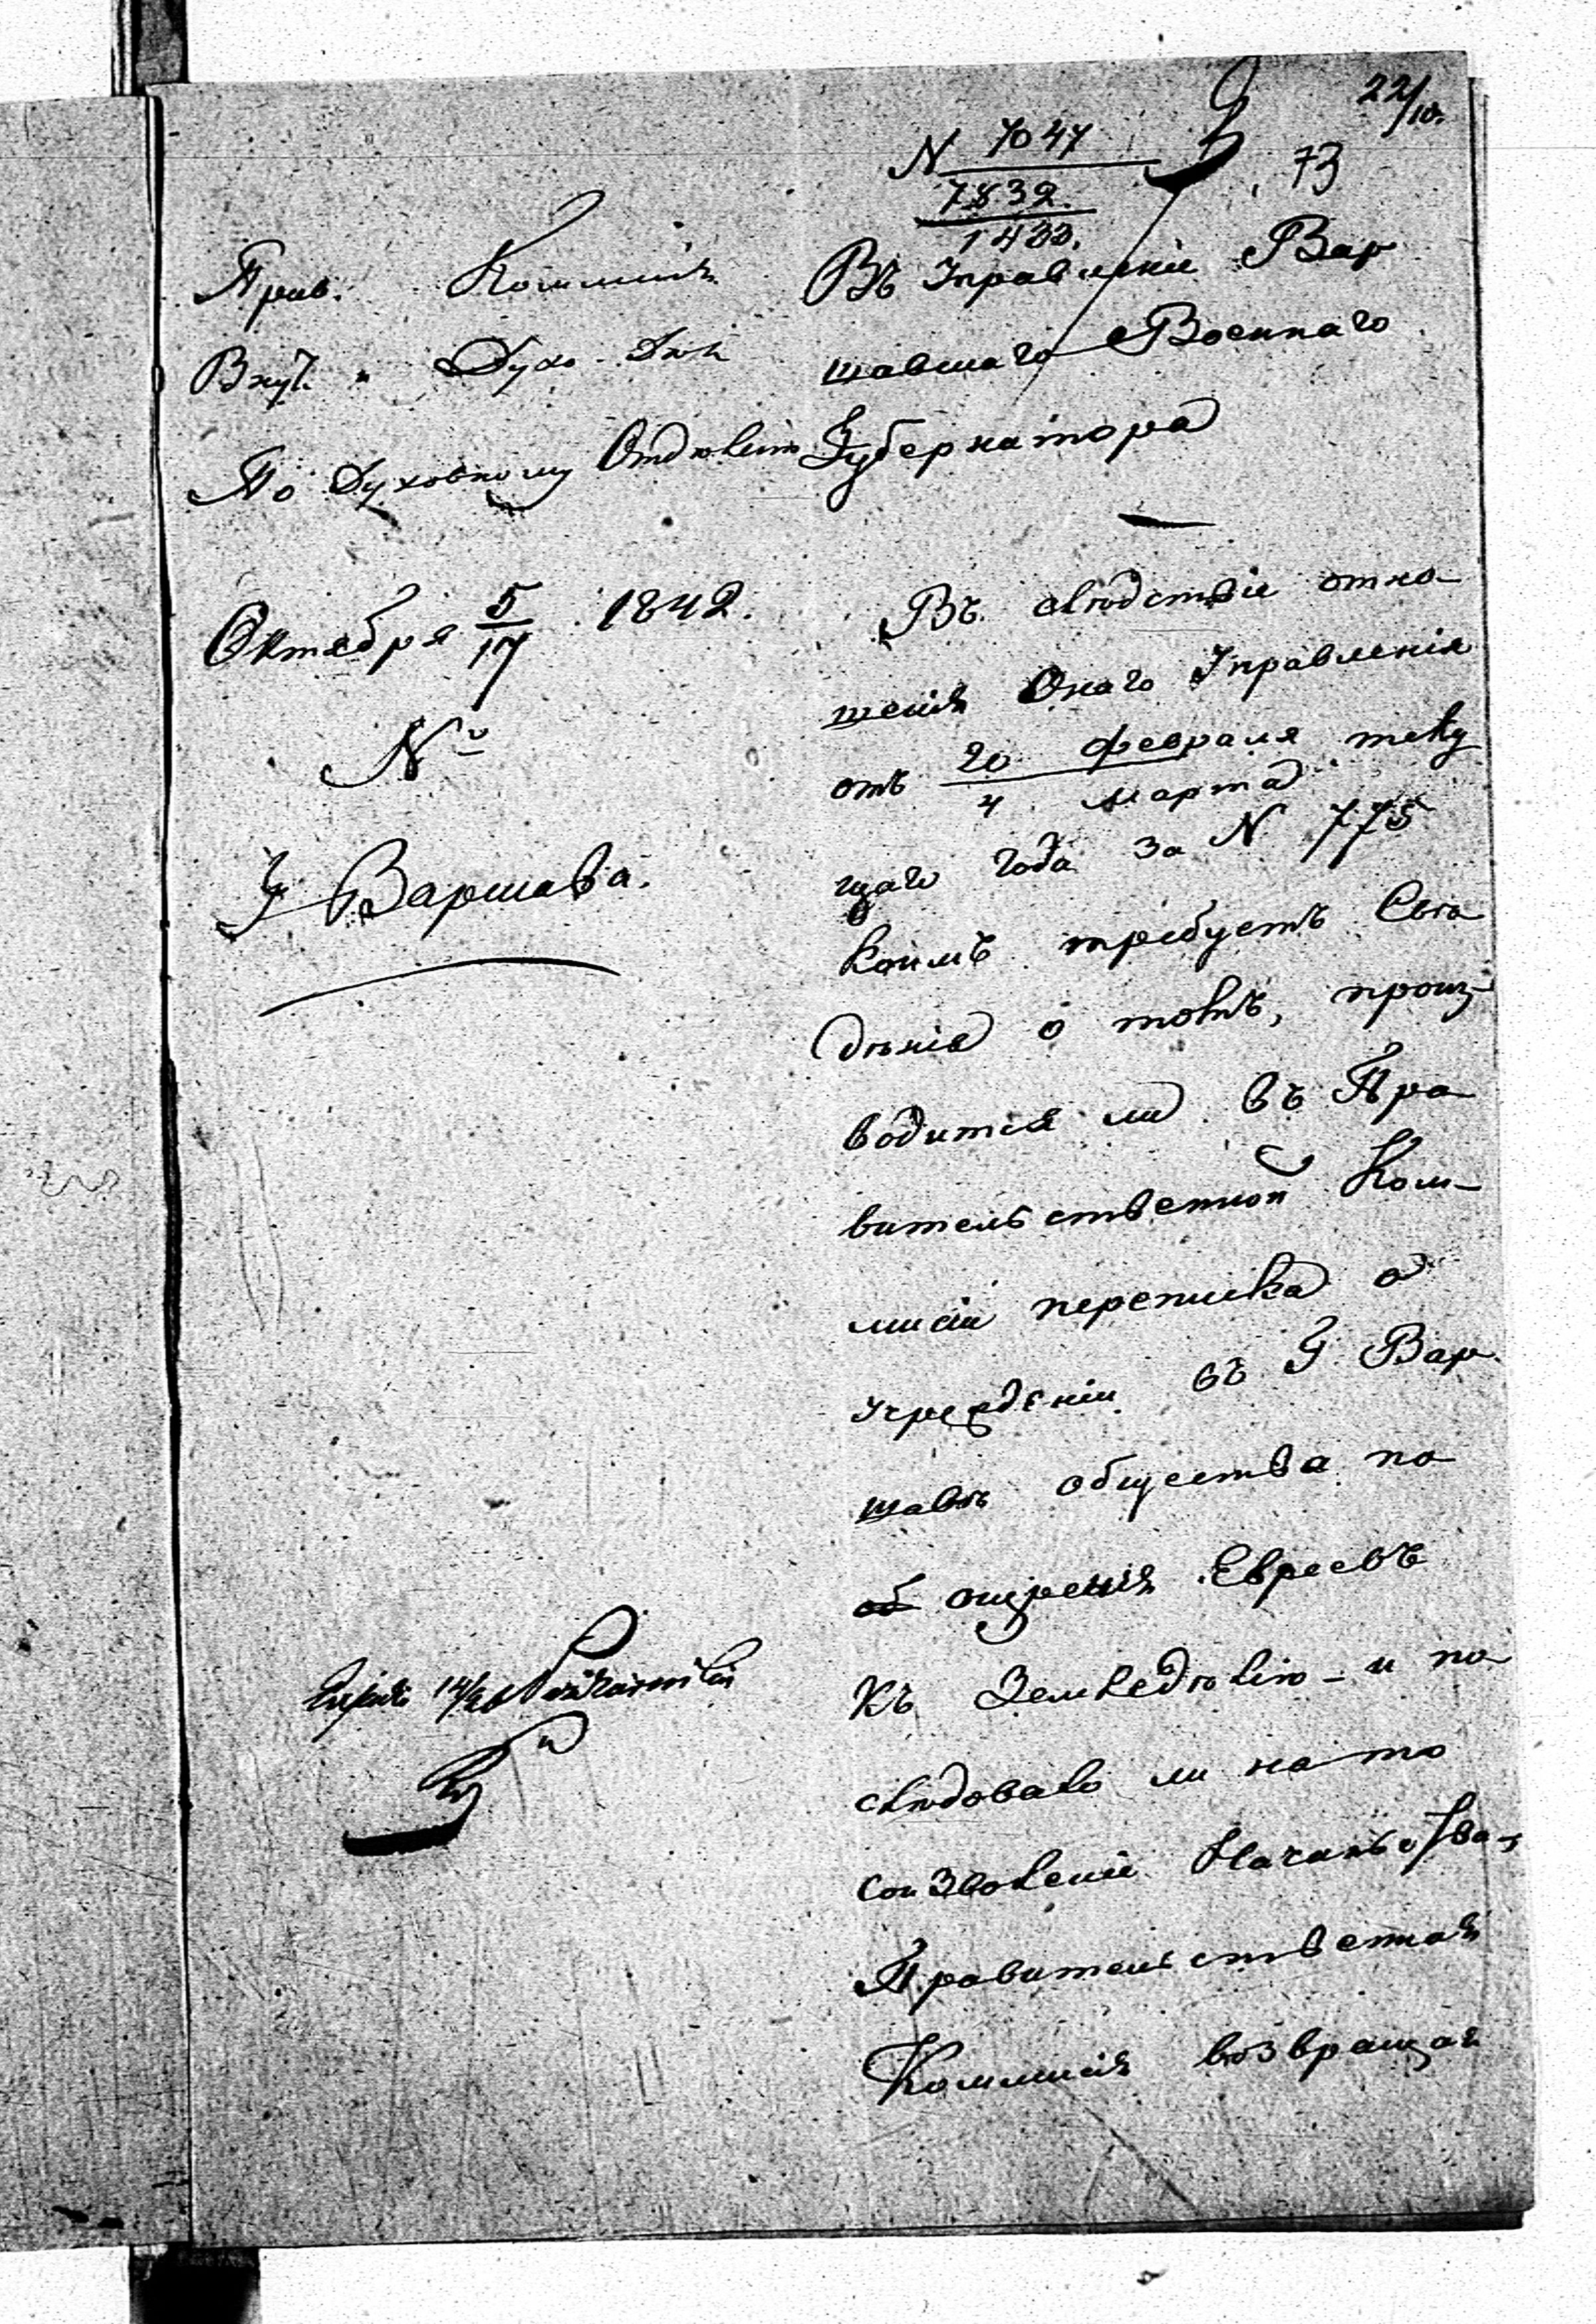 22/10.
N 7047
7832.
1433.
73
Прав. Коммисія
Внут. и Духо. Дѣлъ
По Духовному Отдѣлению
Октября 5/17 1842.
№
Г Варшава.
Въ Управленіе Вар
шавшаго Военнаго
Губернатора
Въ слѣдствіе отно-
шенія Онаго Управленія
отъ 20 февраля / 4 марта теку
щаго года за N 775
коимъ требуетъ Свѣ
дѣнія о томъ, произ-
водится ли въ Пра
вительственной Ком-
мисіи переписка о
учрежденіи въ Г. Вар
шавѣ общества по
об ощренія Евреевъ
къ Земледѣлію - и по
слѣдовало ли на то
соизволеніе Начальства,
Правительственная
Коммисія возвращая